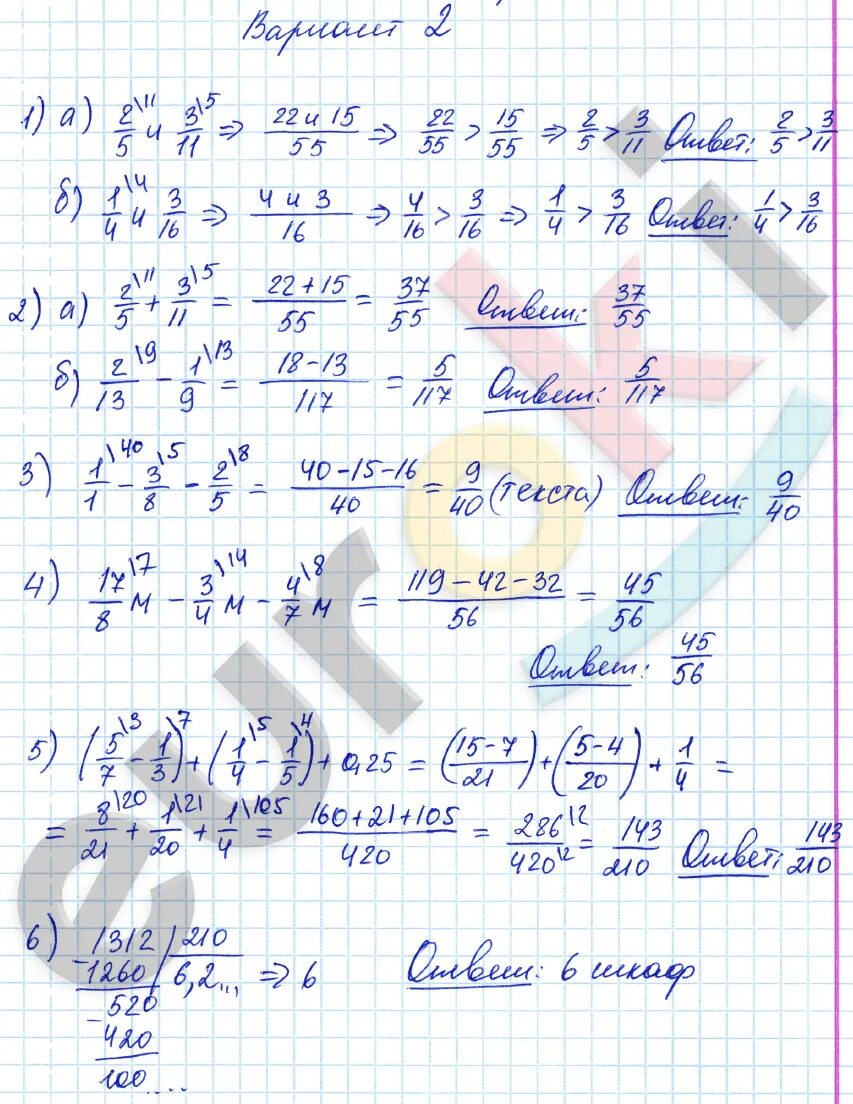 Вариант 2
1) а) 2\11/5 и 3\5/11 ⇒ 22 и 15/55 ⇒ 22/55 > 15/55 ⇒ 2/5 > 3/11 Ответ: 2/5 > 3/11
б) 1\4/4 и 3/16 ⇒ 4 и 3/16 ⇒ 4/16 > 3/16 ⇒ 1/4 > 3/16 Ответ: 1/4 > 3/16
2) а) 2\11/5 + 3\5/11 = 22+15/55 = 37/55 Ответ: 37/55
б) 2\9/13 - 1\13/9 = 18-13/117 = 5/117 Ответ: 5/117
3) 1\40/1 - 3\5/8 - 2\8/5 = 40-15-16/40 = 9/40 (текста) Ответ: 9/40
4) 17\7/8 м - 3\14/4 м - 4\8/7 м = 119-42-32/56 = 45/56
Ответ: 45/56
5) (5\3/7 - 1\7/3) + (1\5/4 - 1\4/5) + 0,25 = (15-7/21) + (5-4/20) + 1/4 =
= 8\20/21 + 1\21/20 + 1\105/4 = 160+21+105/420 = 286\2/420\2 = 143/210 Ответ: 143/210
6) 1312 210
-1260 6,2... ⇒ 6 Ответ: 6 шкаф
-520
420
100....
euroki